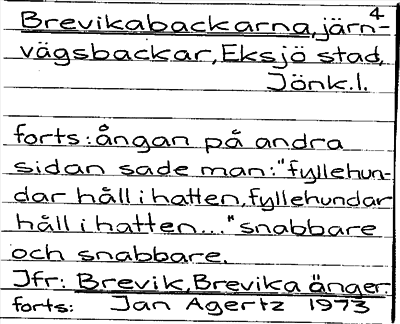 4
Brevikabackarna, järn-
vägsbackar, Eksjö stad,
Jönk.l.
forts: ångan på andra
sidan sade man: "fyllehun-
dar håll i hatten, fyllehundar
håll i hatten..." snabbare
och snabbare.
Jfr: Brevik, Brevika änger.
forts: Jan Agertz 1973